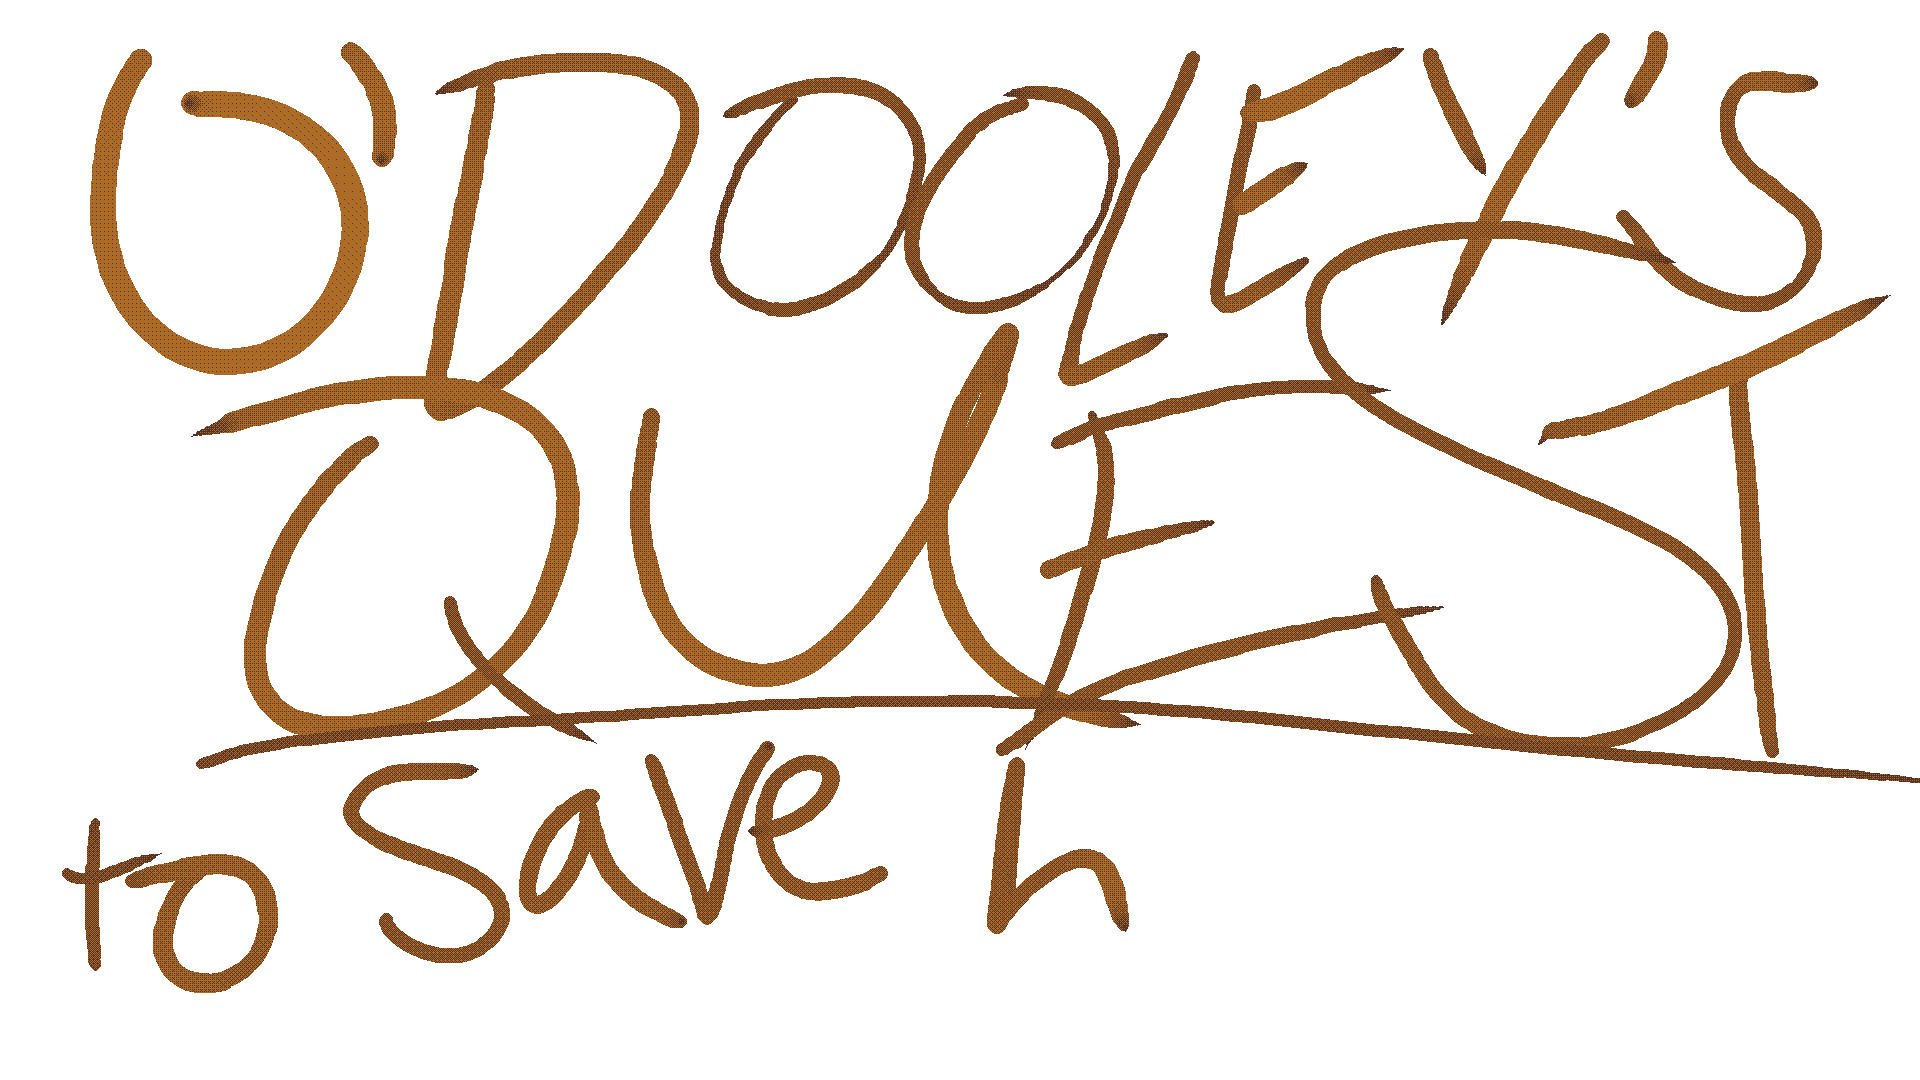 O'DOOLEY'S
QUEST
to save h